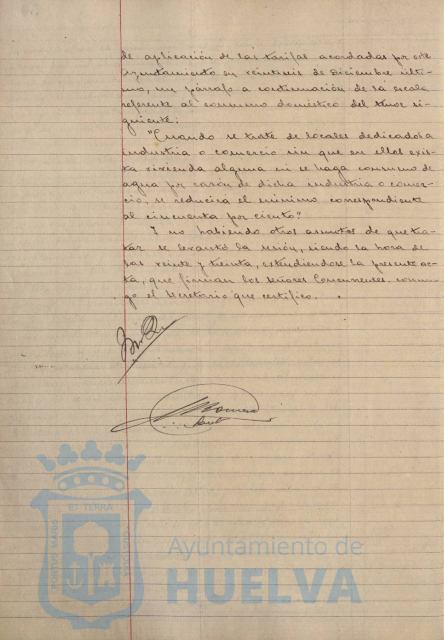 de aplicación de las tarifas acordadas por este
Ayuntamiento en veintiseis de Diciembre últi-
mo, un párrafo a continuación de la escala
referente al consumo doméstico del tenor si-
guiente:
"Cuando se trate de locales dedicados a
industria o comercio sin que en ellos exis-
ta vivienda alguna ni se haga consumo de
agua por razón de dicha industria o comer-
cio, se reducirá el mínimo correspondiente
al cincuenta por ciento."
Y no habiendo otros asuntos de que tra-
tar se levantó la sesión, siendo la hora de
las veinte y treinta, extendiéndose la presente ac-
ta, que firman los señores Concurrentes conmi-
go el Secretario que certifico.
ET TERRA
PORTUS MARIS
CUSTODIA
Ayuntamiento de
HUELVA